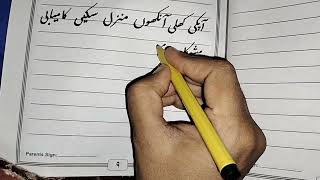 آپکی کھلی آنکھوں منزل سکیں کامیابی
مشکل
Parents Sign:
۹